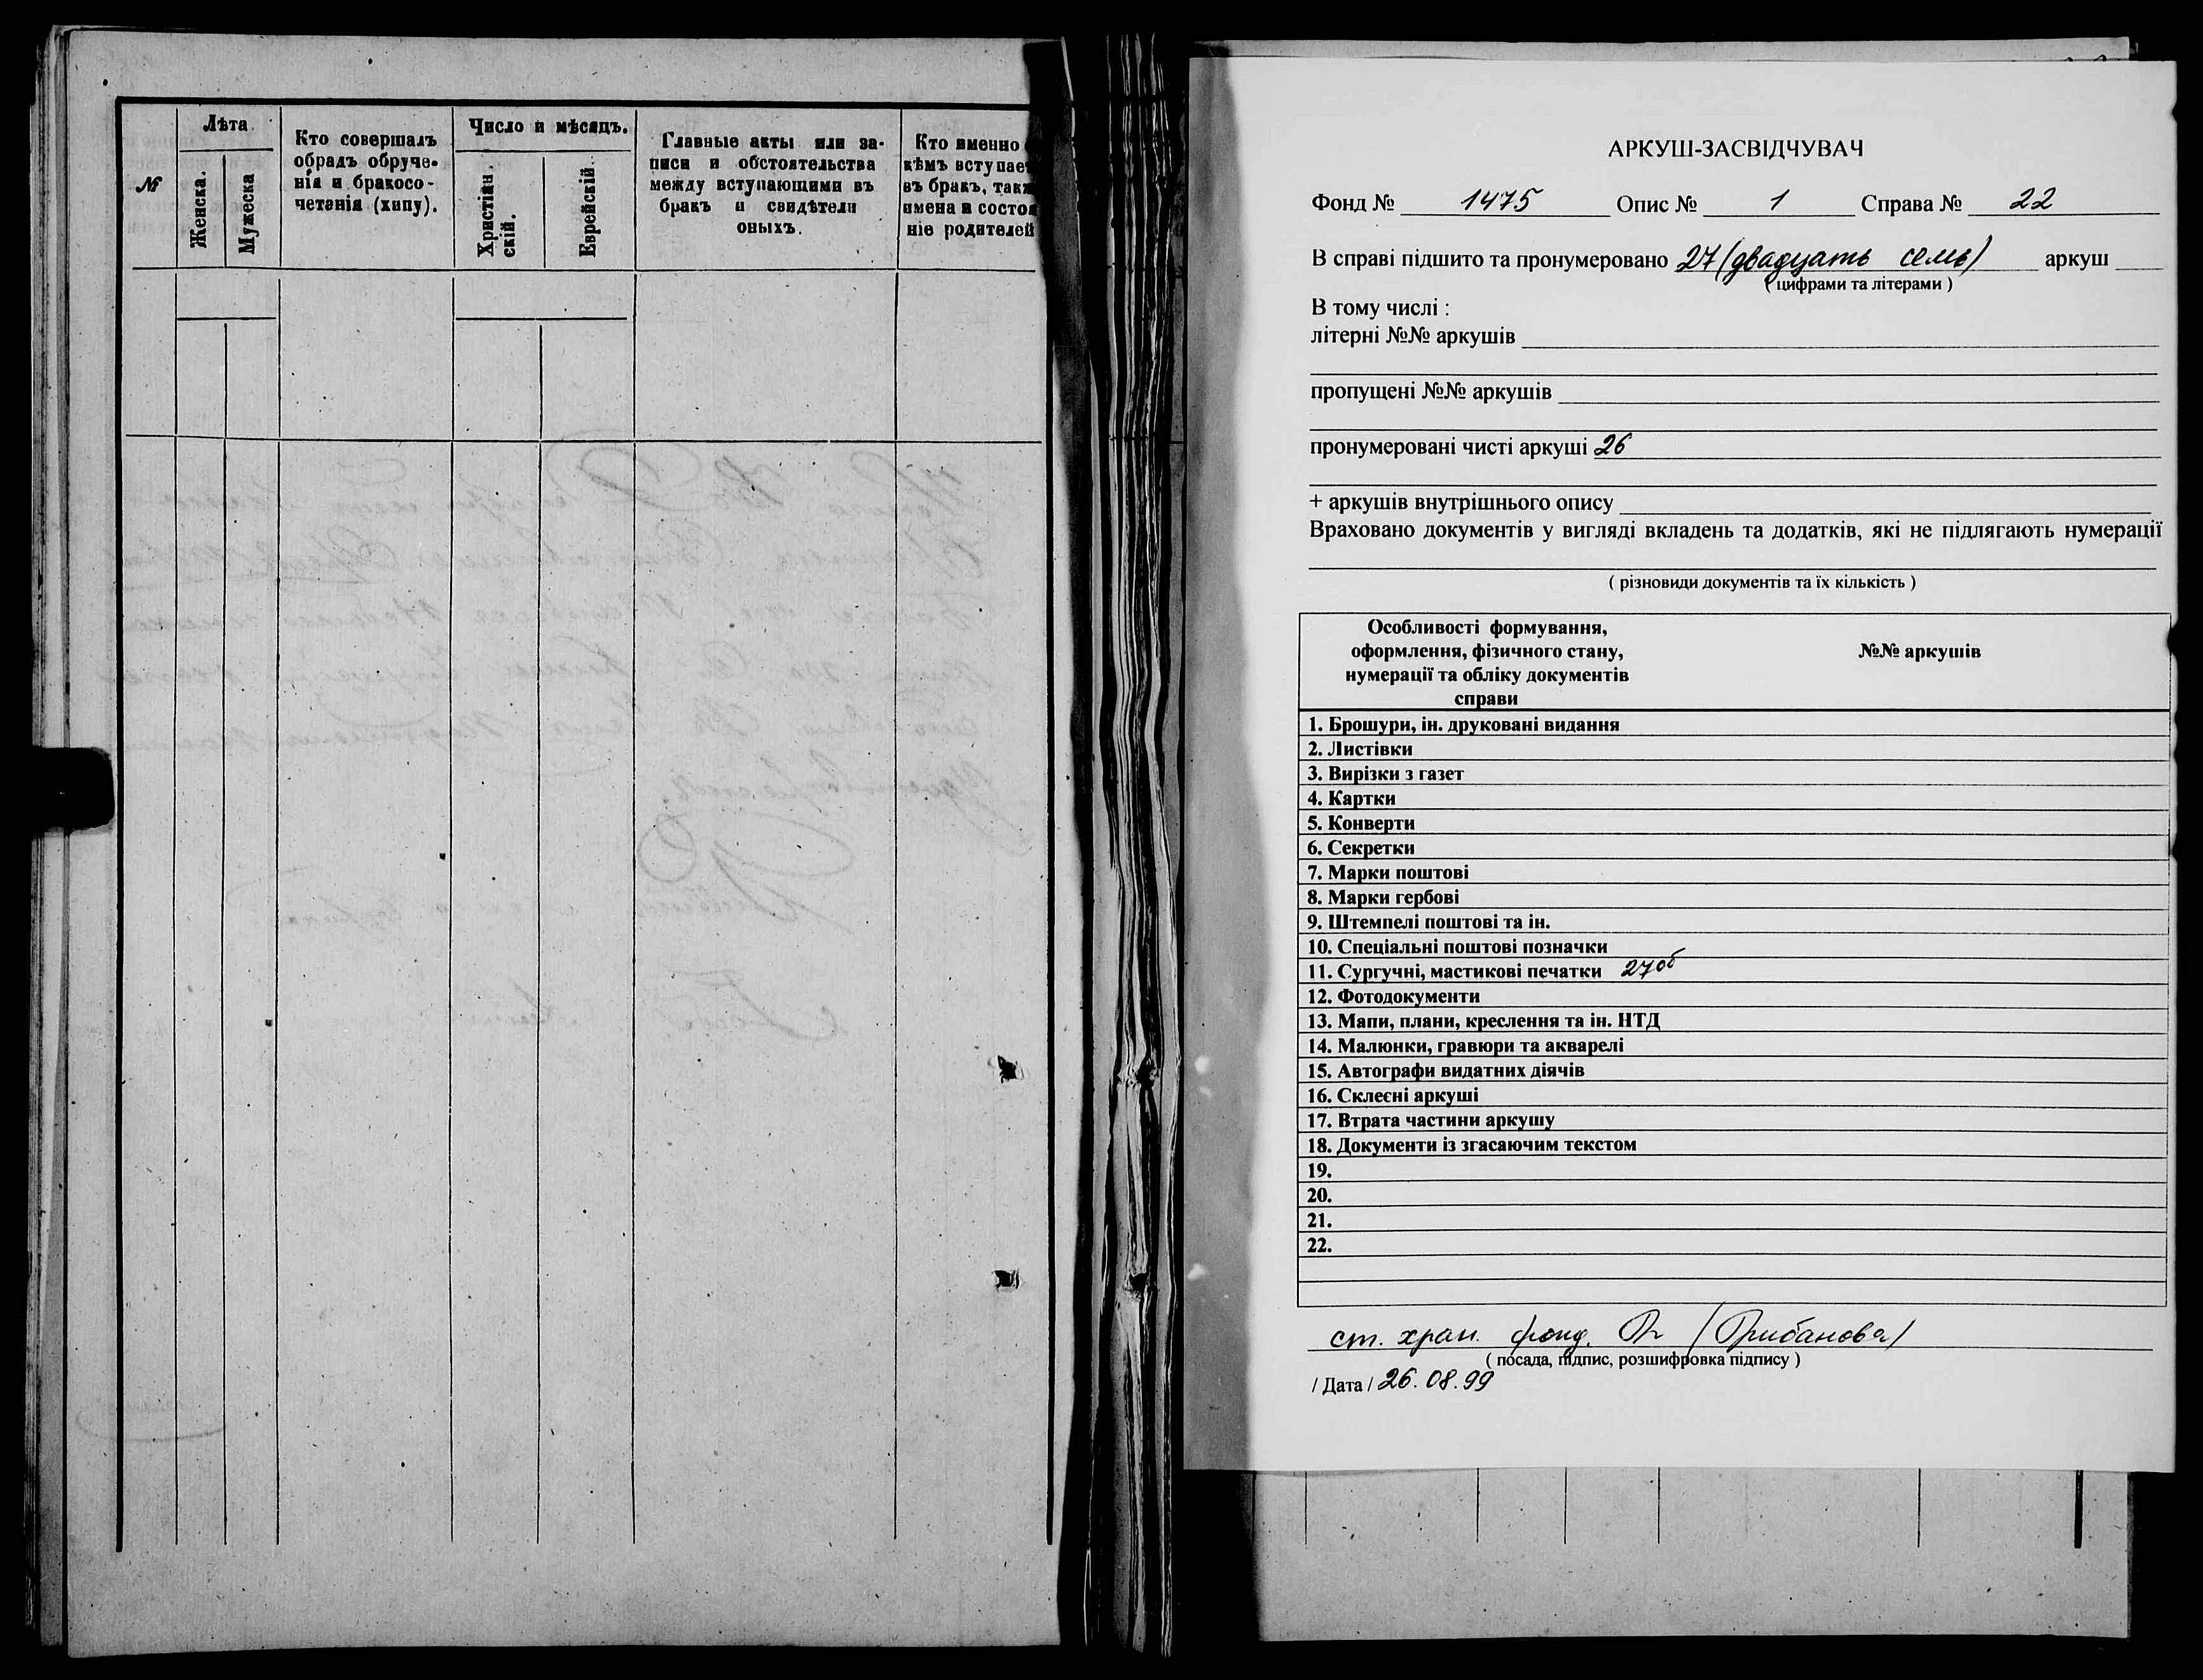 №
Лѣта
Женска.
Мужеска
Кто совершалъ
обрадъ обруче-
нія и бракосо-
четанія (хипу).
Число и мѣсяцъ.
Христіян
скій.
Еврейскій.
Главные акты или за-
писи и обстоятельства
между вступающими въ
бракъ и свидѣтели
оныхъ.
Кто именно
кѣмъ вступает
въ бракъ, такж
имена и состоя
ніе родителей
АРКУШ-ЗАСВІДЧУВАЧ
Фонд № 1475 Опис № 1 Справа № 22
В справі підшито та пронумеровано 27 (двадцать семь) аркуш
( цифрами та літерами )
В тому числі :
літерні №№ аркушів
пропущені №№ аркушів
пронумеровані чисті аркуші 26
+ аркушів внутрішнього опису
Враховано документів у вигляді вкладень та додатків, які не підлягають нумерації
( різновиди документів та їх кількість )
Особливості формування,
оформлення, фізичного стану,
нумерації та обліку документів
справи
№№ аркушів
1. Брошури, ін. друковані видання
2. Листівки
3. Вирізки з газет
4. Картки
5. Конверти
6. Секретки
7. Марки поштові
8. Марки гербові
9. Штемпелі поштові та ін.
10. Спеціальні поштові позначки
11. Сургучні, мастикові печатки 27об
12. Фотодокументи
13. Мапи, плани, креслення та ін. НТД
14. Малюнки, гравюри та акварелі
15. Автографи видатних діячів
16. Склеєні аркуші
17. Втрата частини аркушу
18. Документи із згасаючим текстом
19.
20.
21.
22.
ст. хран. фонд. (Грибанова)
( посада, підпис, розшифровка підпису )
/ Дата / 26.08.99